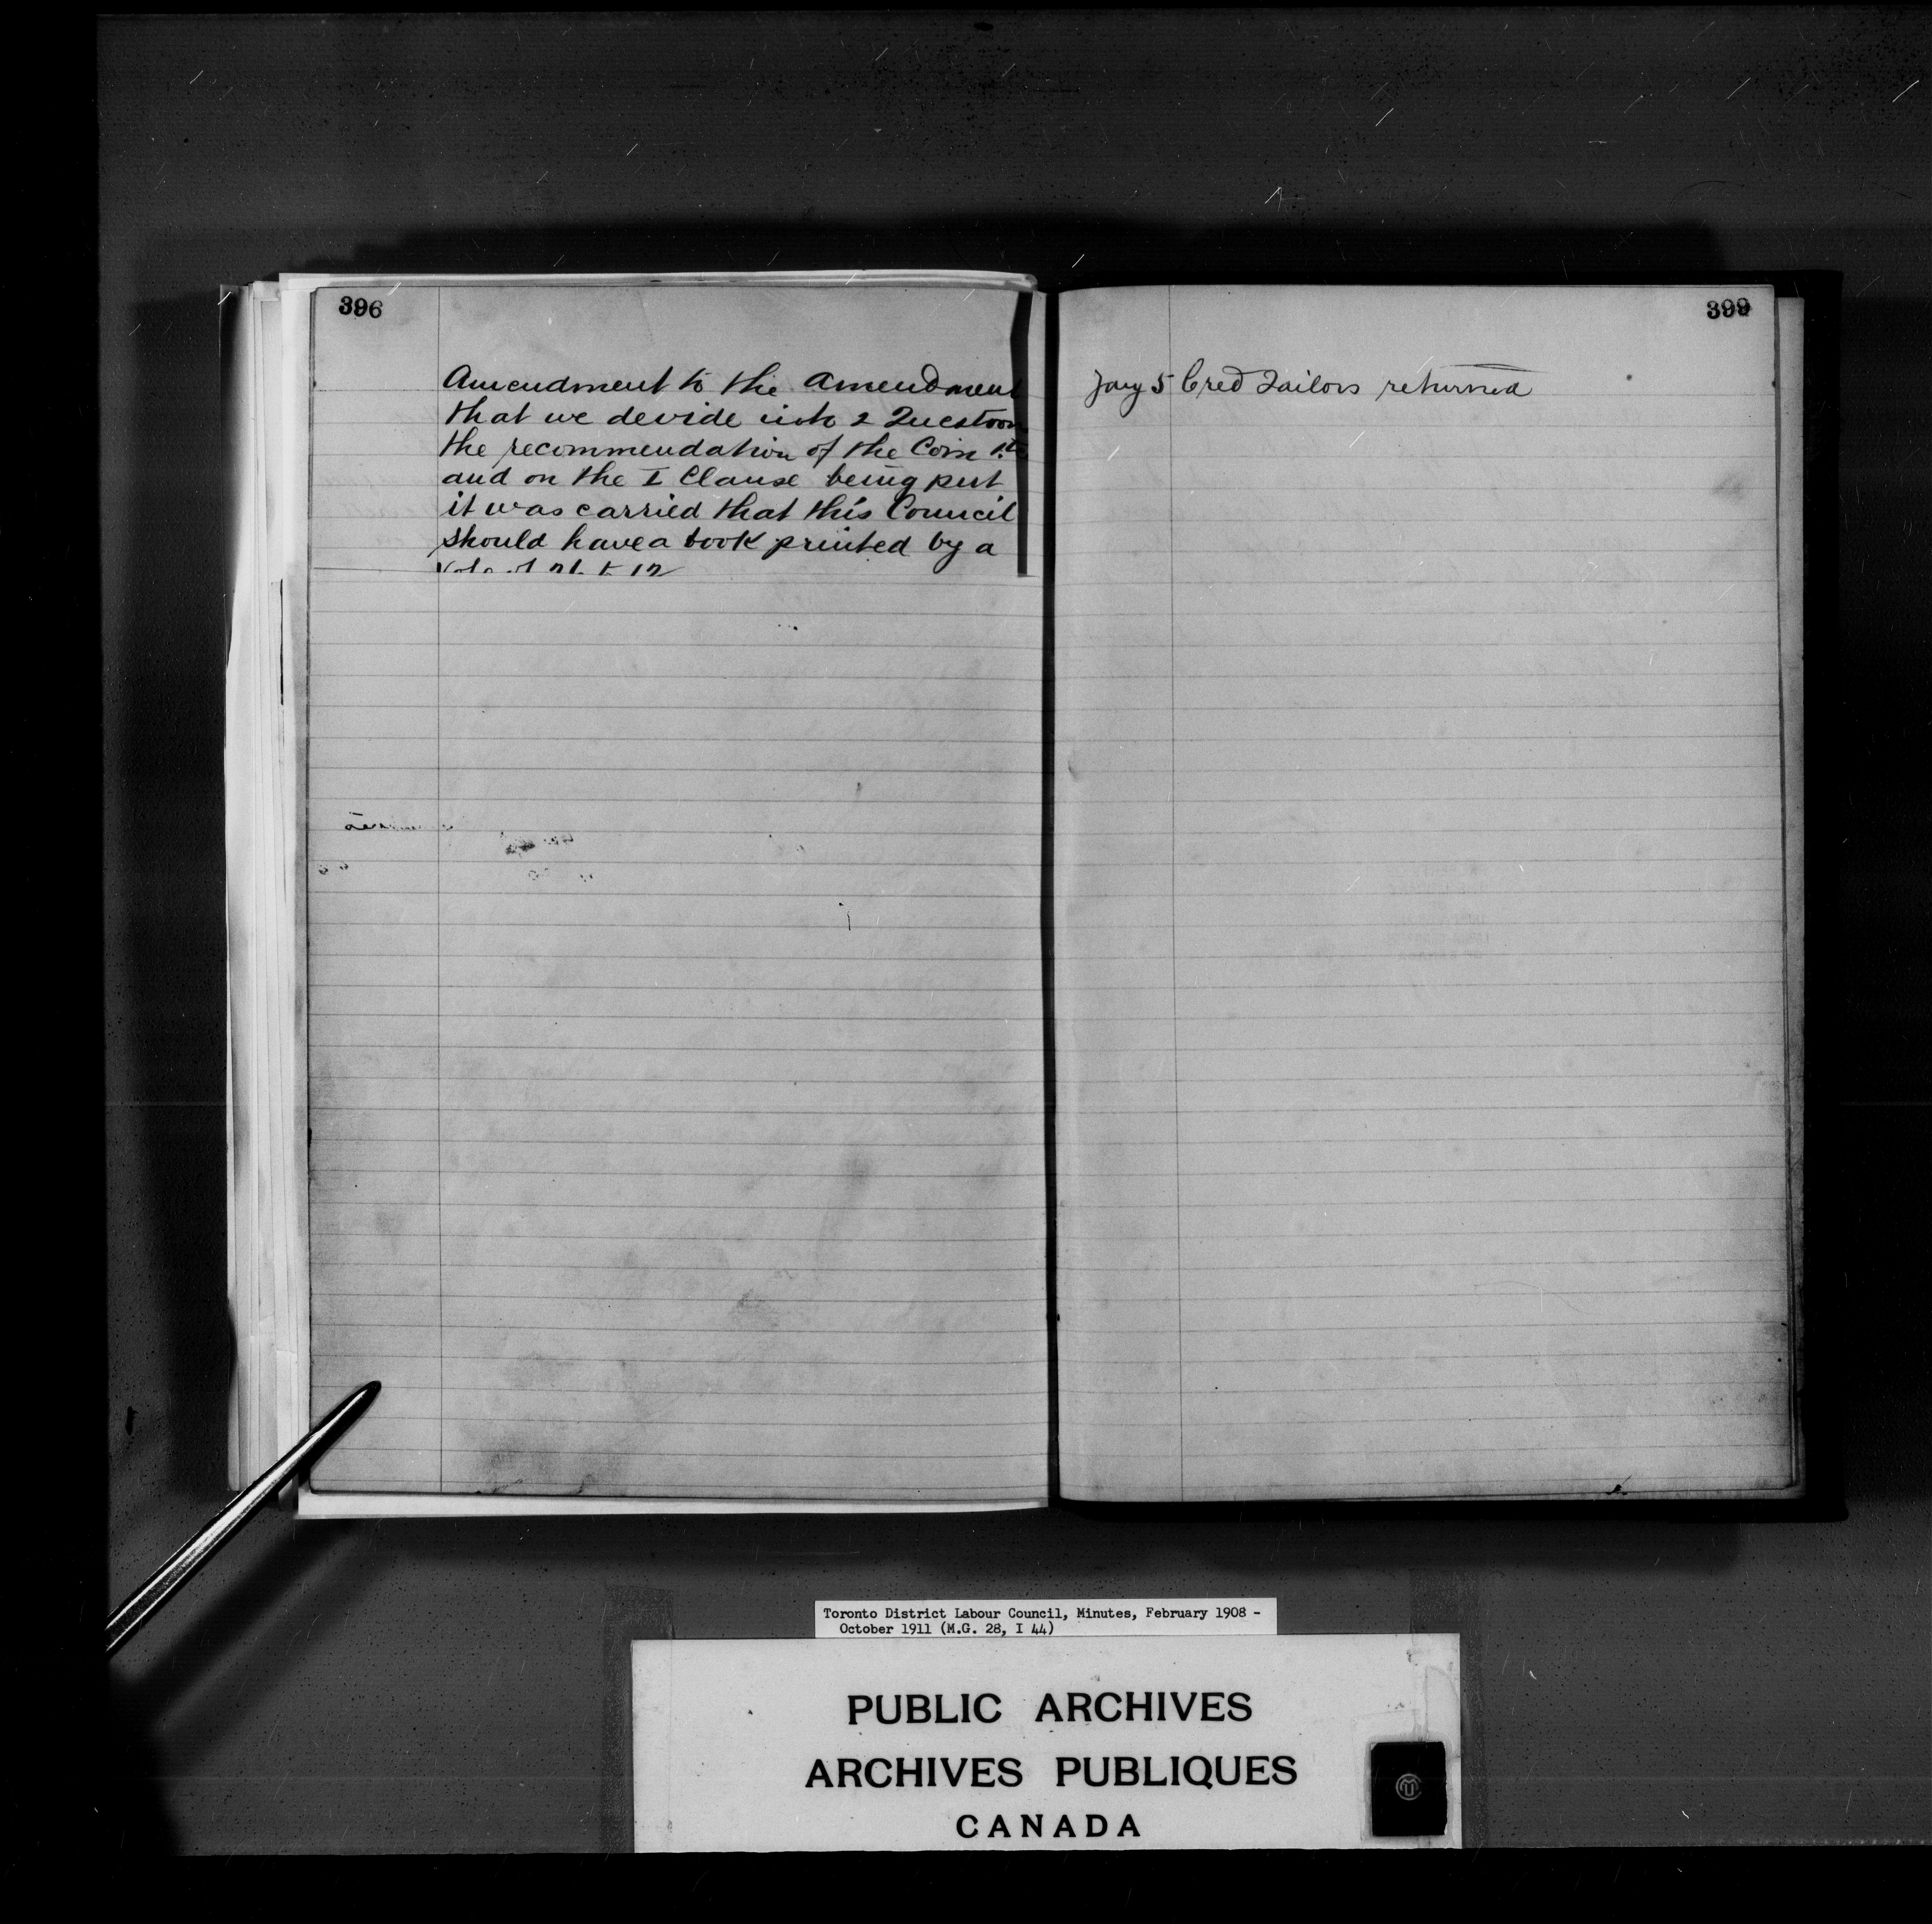 396
Amendment to the amendment
that we devide into 2 Question
the recommendation of the Com
and on the I Clause being put
it was carried that this Council
should have a book printed by a
Vote of to 12
399
Jany 5 Cred Tailors returned
Toronto District Labour Council, Minutes, February 1908 -
October 1911 (M.G. 28, I 44)
PUBLIC ARCHIVES
ARCHIVES PUBLIQUES
CANADA